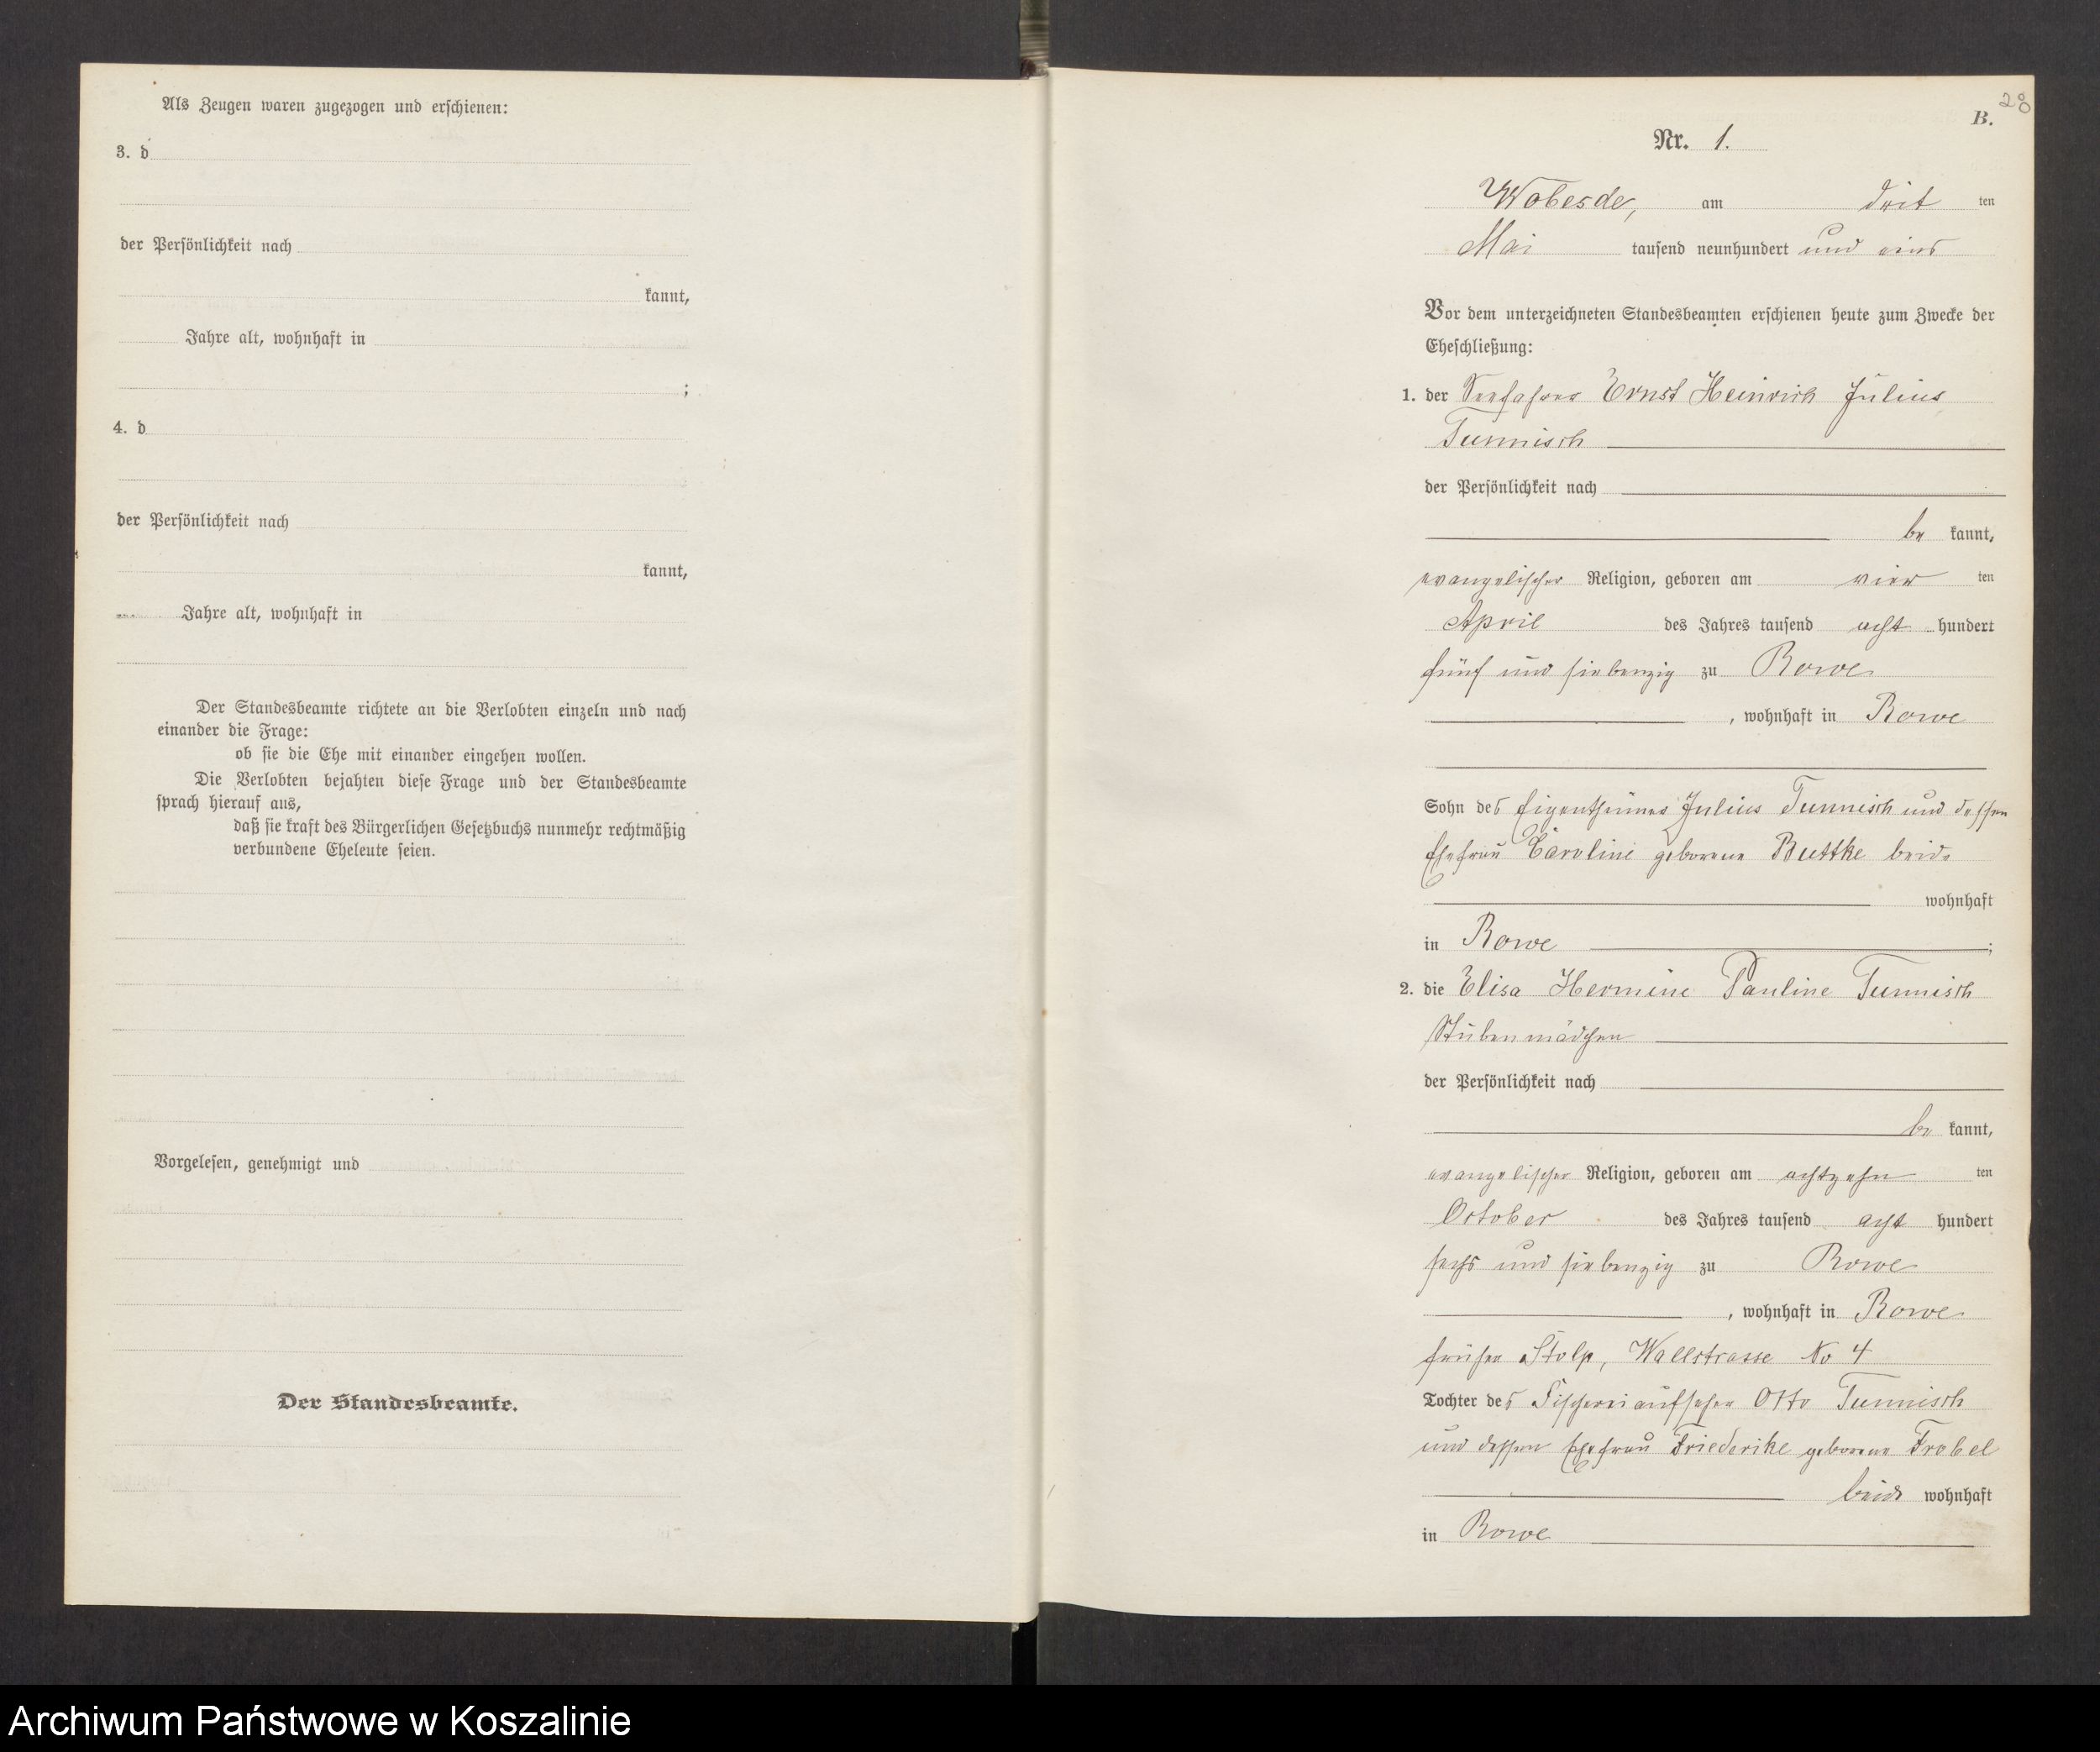 Als Zeugen waren zugezogen und erschienen:
3. d
der Persönlichkeit nach
kannt,
Jahre alt, wohnhaft in
;
4. d
der Persönlichkeit nach
kannt,
Jahre alt, wohnhaft in
Der Standesbeamte richtete an die Verlobten einzeln und nach
einander die Frage:
ob sie die Ehe mit einander eingehen wollen.
Die Verlobten bejahten diese Frage und der Standesbeamte
sprach hierauf aus,
daß sie kraft des Bürgerlichen Gesetzbuchs nunmehr rechtmäßig
verbundene Eheleute seien.
Vorgelesen, genehmigt und
Der Standesbeamte.
28
B.
Nr. 1.
Wobesde, am drit ten
Mai tausend neunhundert und eins
Vor dem unterzeichneten Standesbeamten erschienen heute zum Zwecke der
Eheschließung:
1. der Seefahrer Ernst Heinrich Julius
Tummisch
der Persönlichkeit nach
be kannt,
evangelischer Religion, geboren am vier ten
April des Jahres tausend acht hundert
fünf und siebenzig zu Rowe
, wohnhaft in Rowe
Sohn des Eigenthümers Julius Tummisch und dessen
Ehefrau Caroline geborene Buttke beide
wohnhaft
in Rowe ;
2. die Elisa Hermine Pauline Tummisch
Stubenmädchen
der Persönlichkeit nach
be kannt,
evangelischer Religion, geboren am achtzehn ten
October des Jahres tausend acht hundert
sechs und siebenzig zu Rowe
, wohnhaft in Rowe
früher Stolp, Wallstrasse No 4
Tochter des Fischereiaufseher Otto Tummisch
und dessen Ehefrau Friederike geborene Frobel
beide wohnhaft
in Rowe
Archiwum Państwowe w Koszalinie